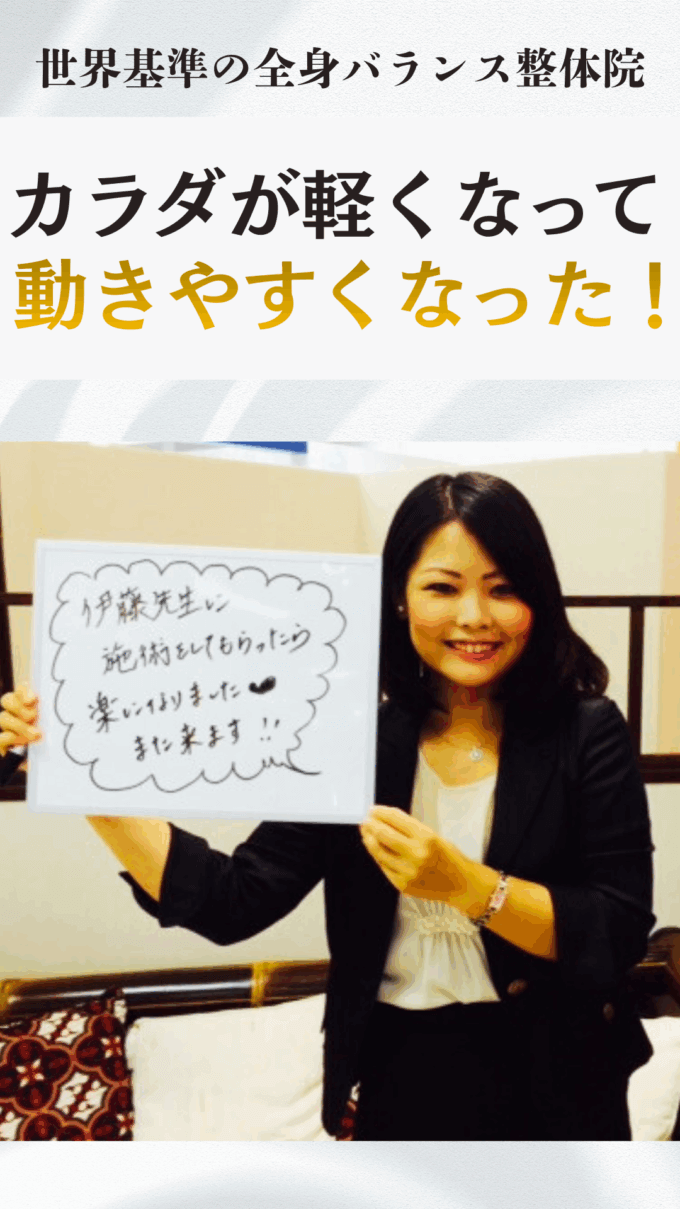 世界基準の全身バランス整体院
カラダが軽くなって
動きやすくなった！
伊藤先生に
施術をしてもらったら
楽になりました♥
また来ます!!